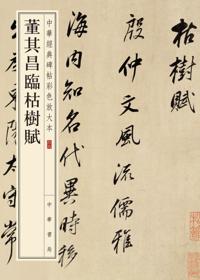 枯樹賦
殷仲文風流儒雅
海內知名代異時移
出為東陽太守常
中華經典碑帖彩色放大本
董其昌臨枯樹賦
中華書局